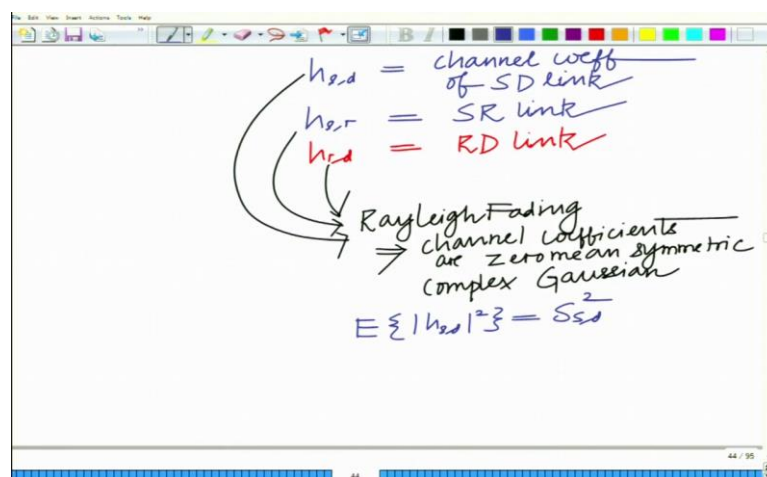 File Edit View Insert Actions Tools Help
h_{s,d} = channel coeff
of SD link
h_{s,r} = SR link
h_{r,d} = RD link
Rayleigh Fading
⇒ channel coefficients
are zero mean symmetric
complex Gaussian
E{|h_{s,d}|²} = δ²_{s,d}
44 / 95
44